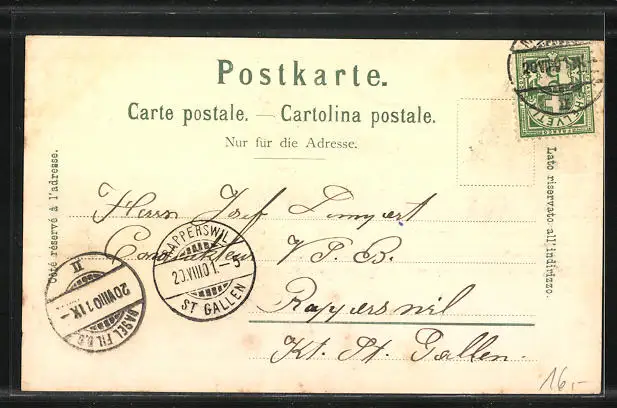 Postkarte.
Carte postale. — Cartolina postale.
Nur für die Adresse.
Côté réservé à l'adresse.
Lato riservato all'indirizzo.
HELVETIA
Herrn Josef
Condukteur V. S. B.
Rapperswil
Kt. St. Gallen.
RAPPERSWIL
20.VIII01.-5
ST GALLEN
II
20VIII01.IX-
BASEL
16,-